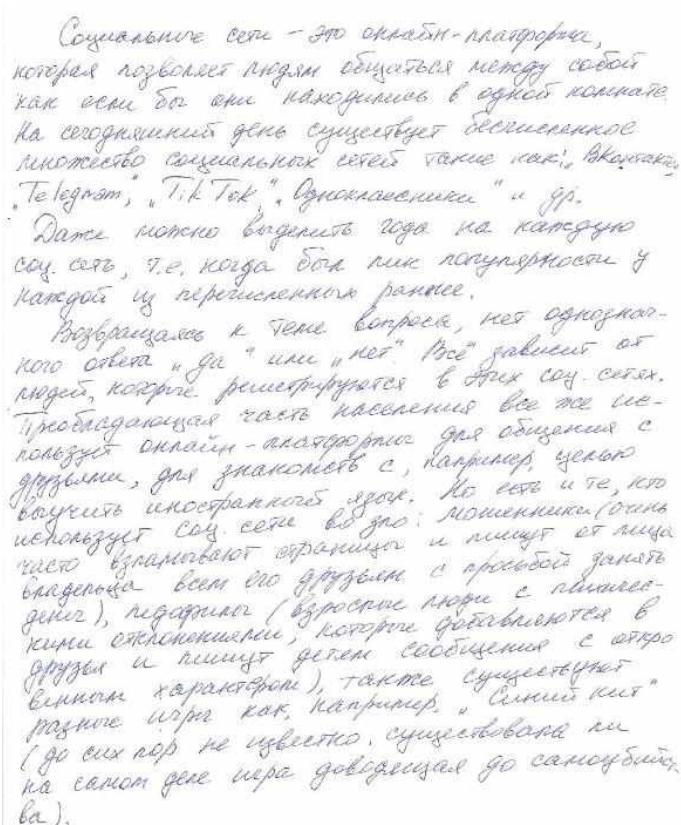 Социальные сети – это онлайн-платформа,
которая позволяет людям общаться между собой
как если бы они находились в одной комнате.
На сегодняшний день существует бесчисленное
множество социальных сетей такие как: „ВКонтакте,
„Telegram", „TikTok", „Одноклассники" и др.
Даже можно выделить года на каждую
соц. сеть, т.е. когда был пик популярности у
каждой из перечисленных ранее.
Возвращаясь к теме вопроса, нет однознач-
ного ответа „да" или „нет". Всё зависит от
людей, которые регистрируются в этих соц. сетях.
Преобладающая часть населения все же ис-
пользует онлайн-платформы для общения с
друзьями, для знакомств с, например, целью
выучить иностранный язык. Но есть и те, кто
использует соц. сети во зло: мошенники (очень
часто взламывают страницы и пишут от лица
владельца всем его друзьям с просьбой занять
денег), педофилы (взрослые люди с психичес-
кими отклонениями, которые добавляются в
друзья и пишут детям сообщения с откро
венным характером), также существуют
разные игры как, например, „Синий кит"
(до сих пор не известно, существовала ли
на самом деле игра доводящая до самоубийст-
ва).